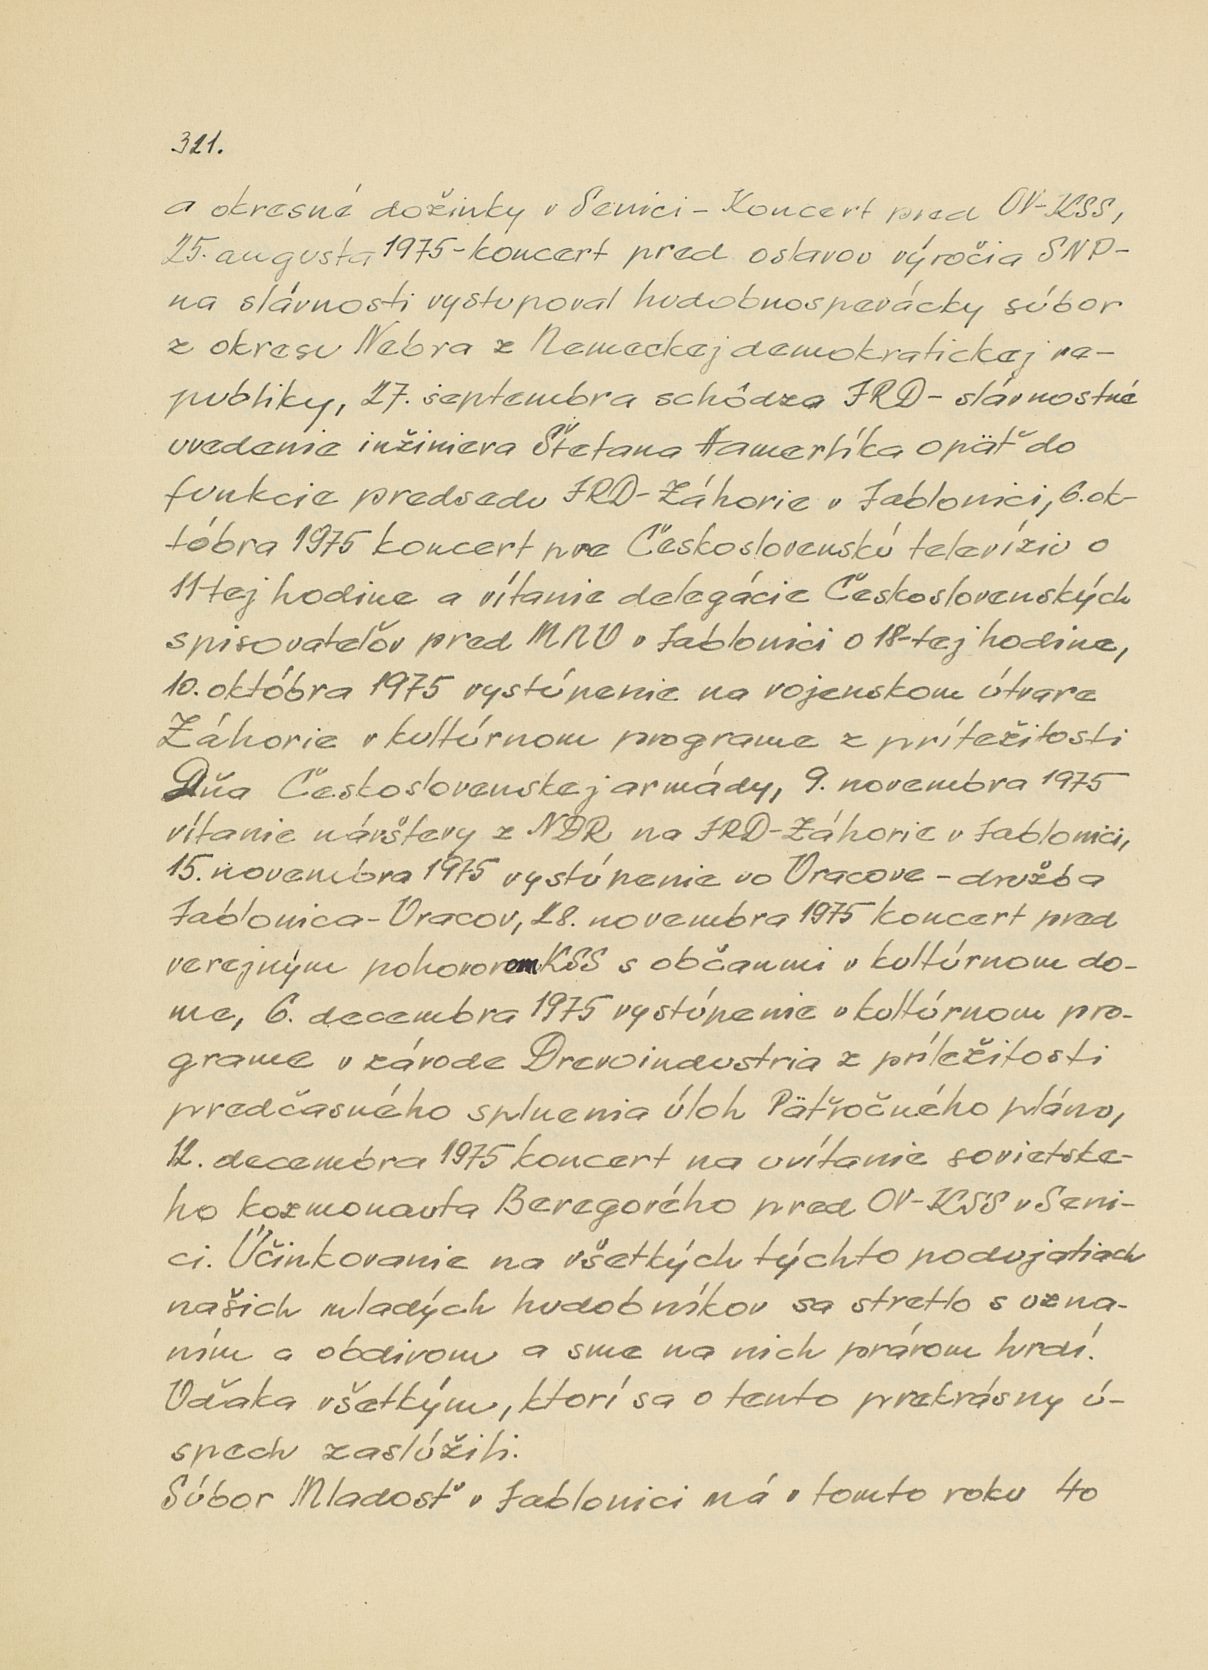 321.
a okresné dožinky v Senici - Koncert pred OV-KSS,
25. augusta 1975 - koncert pred oslavou výročia SNP -
na slávnosti vystupoval hudobnospevácky súbor
z okresu Nebra z Nemeckej demokratickej re-
publiky, 27. septembra schôdza JRD - slávnostné
uvedenie inžiniera Štefana Hamerlíka opäť do
funkcie predsedu JRD - Záhorie v Jablonici, 6. ok-
tóbra 1975 koncert pre Československú televíziu o
11-tej hodine a vítanie delegácie Československých
spisovateľov pred MNV v Jablonici o 18-tej hodine,
10. októbra 1975 vystúpenie na vojenskom útvare
Záhorie v kultúrnom programe z príležitosti
Dňa Československej armády, 9. novembra 1975
vítanie návštevy z NDR na JRD - Záhorie v Jablonici,
15. novembra 1975 vystúpenie vo Vracove - družba
Jablonica - Vracov, 28. novembra 1975 koncert pred
verejným pohovorom KSS s občanmi v kultúrnom do-
me, 6. decembra 1975 vystúpenie v kultúrnom pro-
grame v závode Drevoindustria z príležitosti
predčasného splnenia úloh Päťročného plánu,
12. decembra 1975 koncert na uvítanie sovietske-
ho kozmonauta Beregového pred OV-KSS v Seni-
ci. Účinkovanie na všetkých týchto podujatiach
našich mladých hudobníkov sa stretlo s uzna-
ním a obdivom a sme na nich právom hrdí.
Vďaka všetkým, ktorí sa o tento prekrásny ú-
spech zaslúžili.
Súbor Mladosť v Jablonici má v tomto roku 40